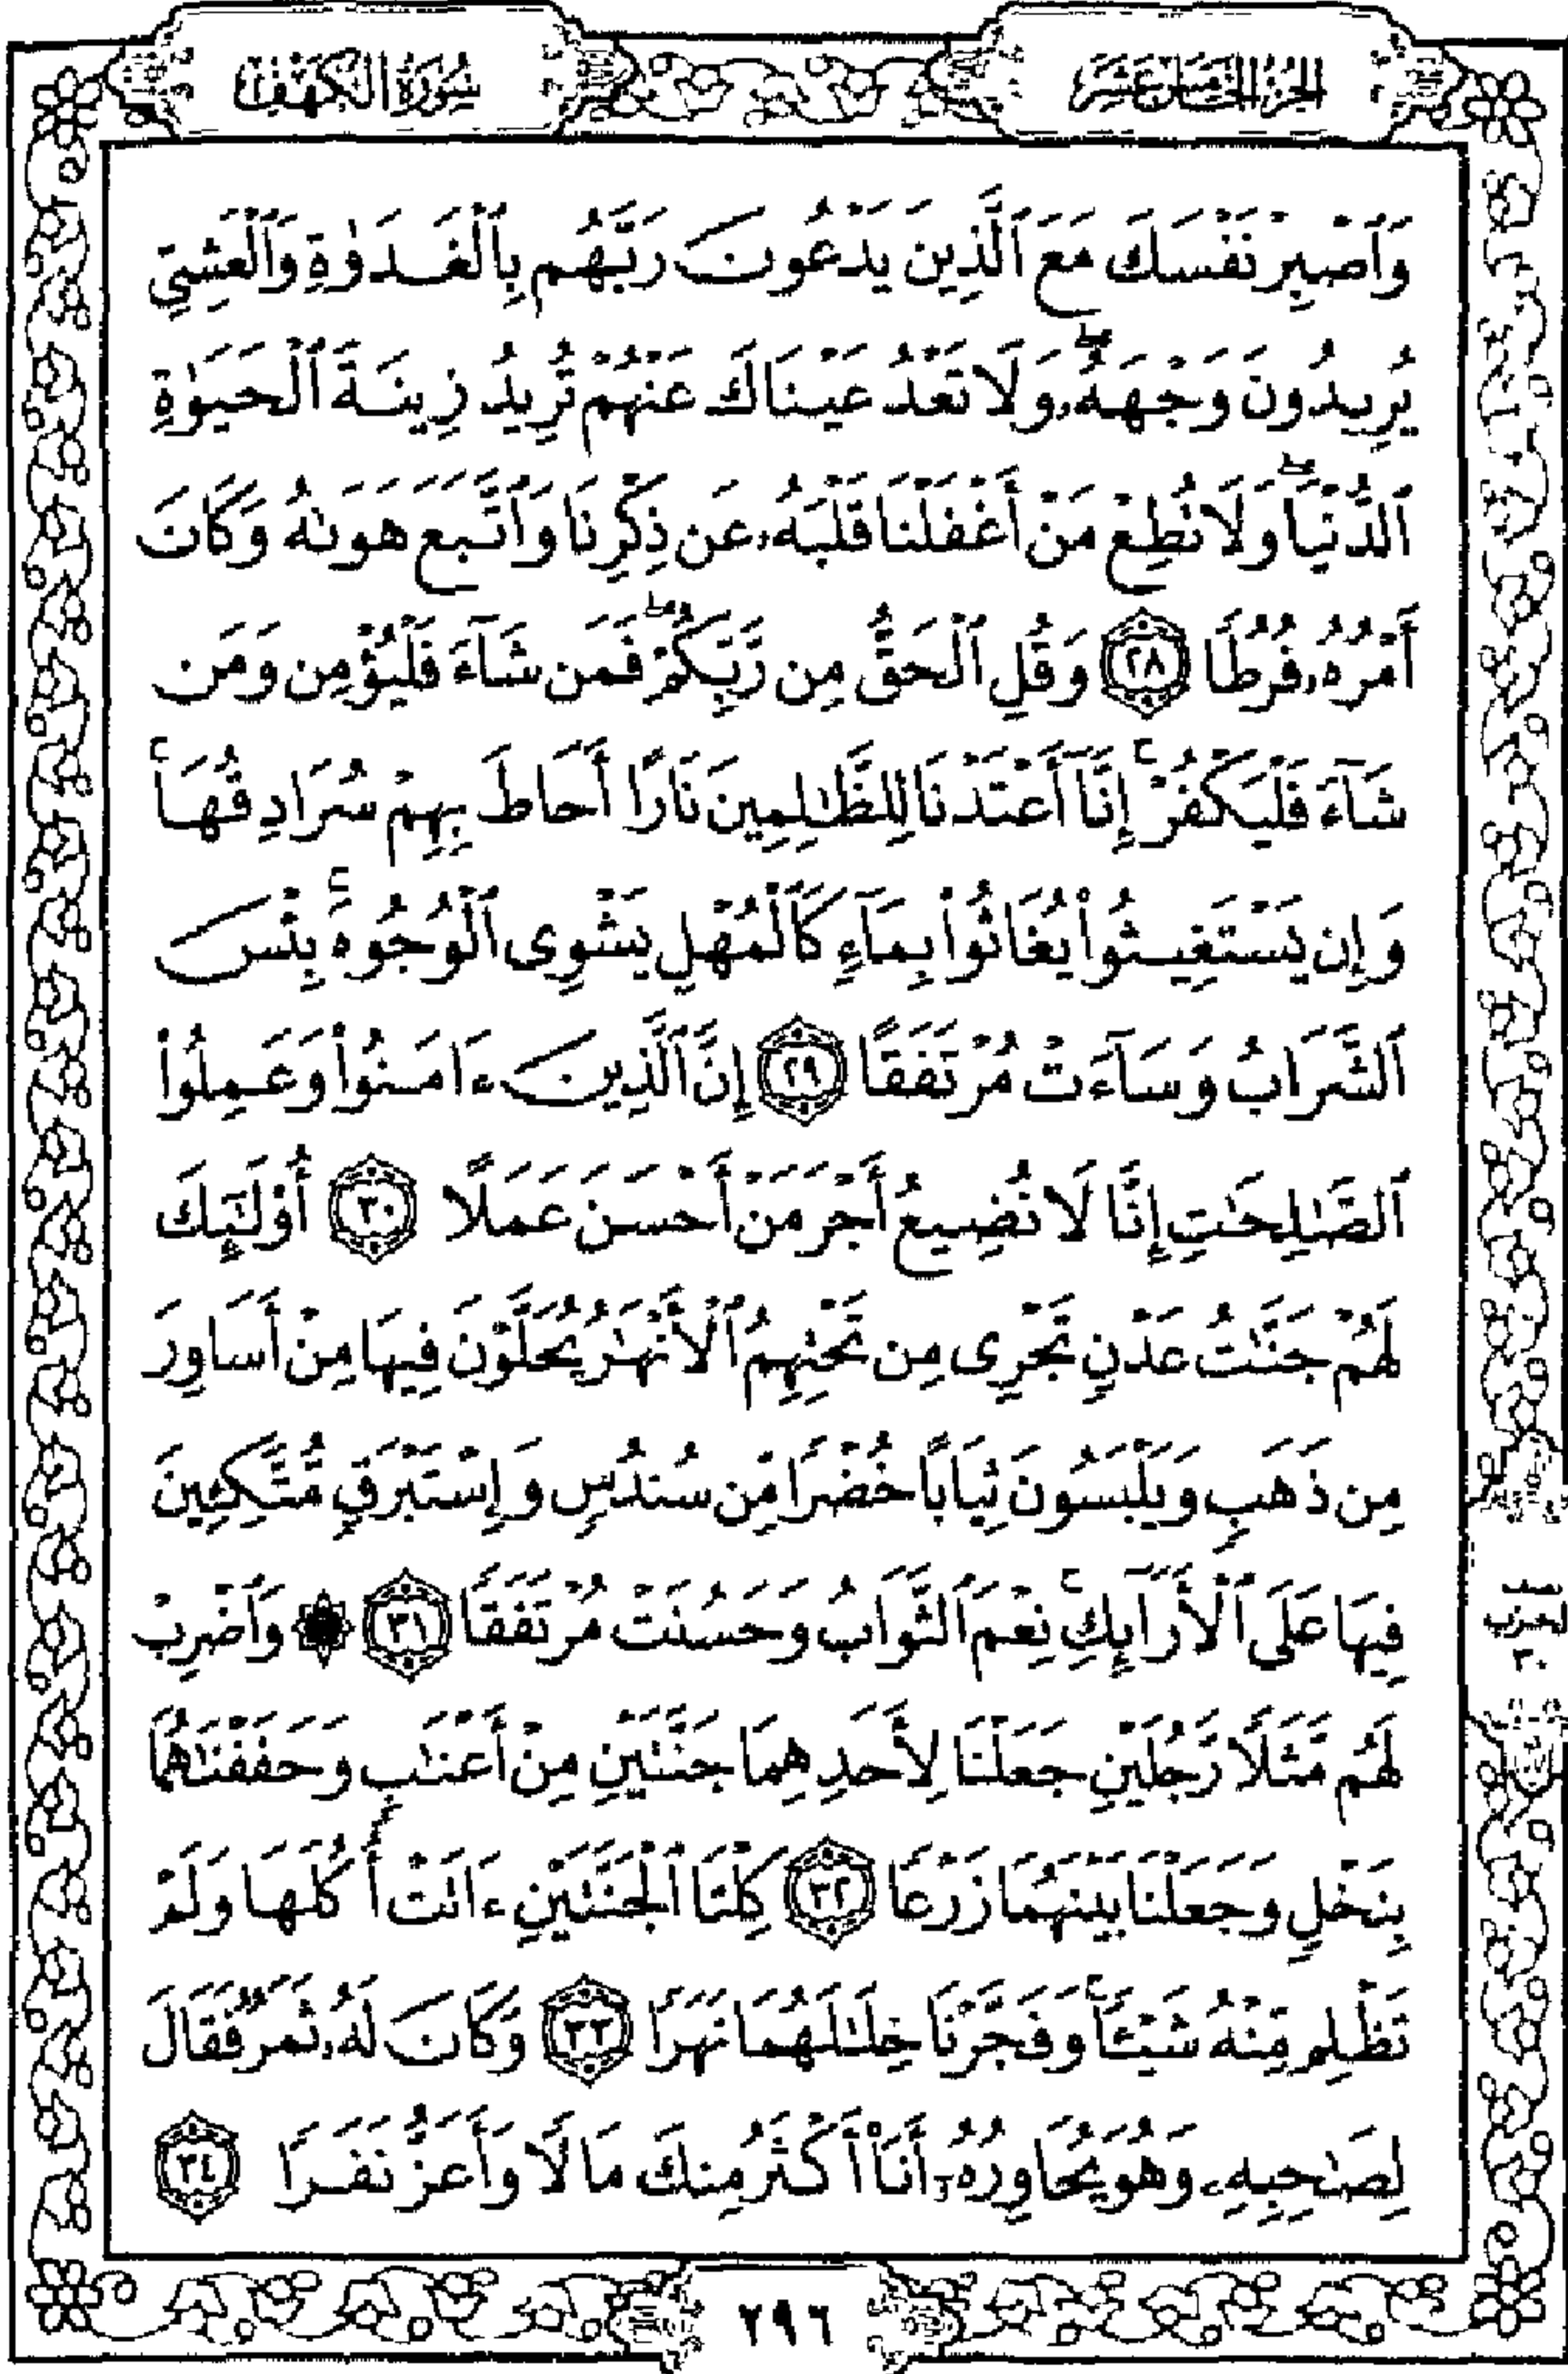 الجزء الخامس عشر
سورة الكهف
وَٱصۡبِرۡ نَفۡسَكَ مَعَ ٱلَّذِينَ يَدۡعُونَ رَبَّهُم بِٱلۡغَدَوٰةِ وَٱلۡعَشِيِّ
يُرِيدُونَ وَجۡهَهُۥۖ وَلَا تَعۡدُ عَيۡنَاكَ عَنۡهُمۡ تُرِيدُ زِينَةَ ٱلۡحَيَوٰةِ
ٱلدُّنۡيَاۖ وَلَا تُطِعۡ مَنۡ أَغۡفَلۡنَا قَلۡبَهُۥ عَن ذِكۡرِنَا وَٱتَّبَعَ هَوَىٰهُ وَكَانَ
أَمۡرُهُۥ فُرُطٗا ٢٨ وَقُلِ ٱلۡحَقُّ مِن رَّبِّكُمۡۖ فَمَن شَآءَ فَلۡيُؤۡمِن وَمَن
شَآءَ فَلۡيَكۡفُرۡۚ إِنَّآ أَعۡتَدۡنَا لِلظَّٰلِمِينَ نَارًا أَحَاطَ بِهِمۡ سُرَادِقُهَاۚ
وَإِن يَسۡتَغِيثُواْ يُغَاثُواْ بِمَآءٖ كَٱلۡمُهۡلِ يَشۡوِي ٱلۡوُجُوهَۚ بِئۡسَ
ٱلشَّرَابُ وَسَآءَتۡ مُرۡتَفَقًا ٢٩ إِنَّ ٱلَّذِينَ ءَامَنُواْ وَعَمِلُواْ
ٱلصَّٰلِحَٰتِ إِنَّا لَا نُضِيعُ أَجۡرَ مَنۡ أَحۡسَنَ عَمَلًا ٣٠ أُوْلَٰٓئِكَ
لَهُمۡ جَنَّٰتُ عَدۡنٖ تَجۡرِي مِن تَحۡتِهِمُ ٱلۡأَنۡهَٰرُ يُحَلَّوۡنَ فِيهَا مِنۡ أَسَاوِرَ
مِن ذَهَبٖ وَيَلۡبَسُونَ ثِيَابًا خُضۡرٗا مِّن سُندُسٖ وَإِسۡتَبۡرَقٖ مُّتَّكِـِٔينَ
فِيهَا عَلَى ٱلۡأَرَآئِكِۚ نِعۡمَ ٱلثَّوَابُ وَحَسُنَتۡ مُرۡتَفَقٗا ٣١ ۞ وَٱضۡرِبۡ
لَهُم مَّثَلٗا رَّجُلَيۡنِ جَعَلۡنَا لِأَحَدِهِمَا جَنَّتَيۡنِ مِنۡ أَعۡنَٰبٖ وَحَفَفۡنَٰهُمَا
بِنَخۡلٖ وَجَعَلۡنَا بَيۡنَهُمَا زَرۡعٗا ٣٢ كِلۡتَا ٱلۡجَنَّتَيۡنِ ءَاتَتۡ أُكُلَهَا وَلَمۡ
تَظۡلِم مِّنۡهُ شَيۡـٔٗاۚ وَفَجَّرۡنَا خِلَٰلَهُمَا نَهَرٗا ٣٣ وَكَانَ لَهُۥ ثَمَرٞ فَقَالَ
لِصَٰحِبِهِۦ وَهُوَ يُحَاوِرُهُۥٓ أَنَا۠ أَكۡثَرُ مِنكَ مَالٗا وَأَعَزُّ نَفَرٗا ٣٤
٢٩٦